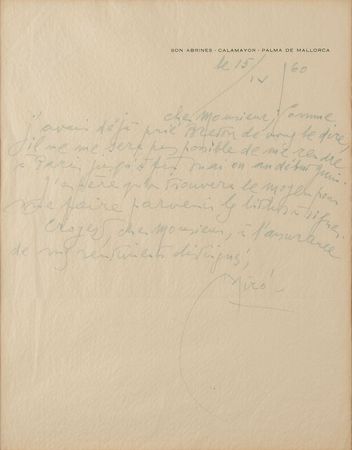 SON ABRINES - CALAMAYOR - PALMA DE MALLORCA
le 15/IV/60
cher Monsieur, Comme
j'avais déjà prié Breton de vous le dire,
il ne me sera pas possible de me rendre
à Paris jusqu'à fin mai ou au début juin.
J'espère qu'on trouvera le moyen pour
me faire parvenir les lithos à signer.
Croyez, cher Monsieur, à l'assurance
de mes sentiments distingués,
Miró